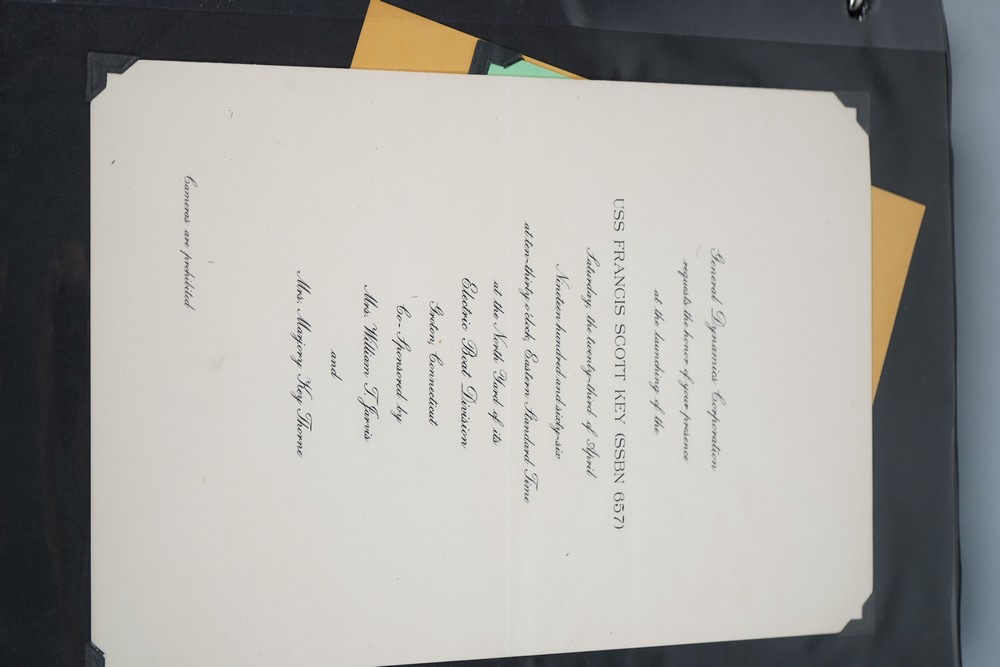 General Dynamics Corporation
requests the honor of your presence
at the launching of the
USS FRANCIS SCOTT KEY (SSBN 657)
Saturday, the twenty-third of April
Nineteen hundred and sixty-six
at ten-thirty o'clock, Eastern Standard Time
at the North Yard of its
Electric Boat Division
Groton, Connecticut
Co-Sponsored by
Mrs. William T. Jarvis
and
Mrs. Marjory Key Thorne
Cameras are prohibited